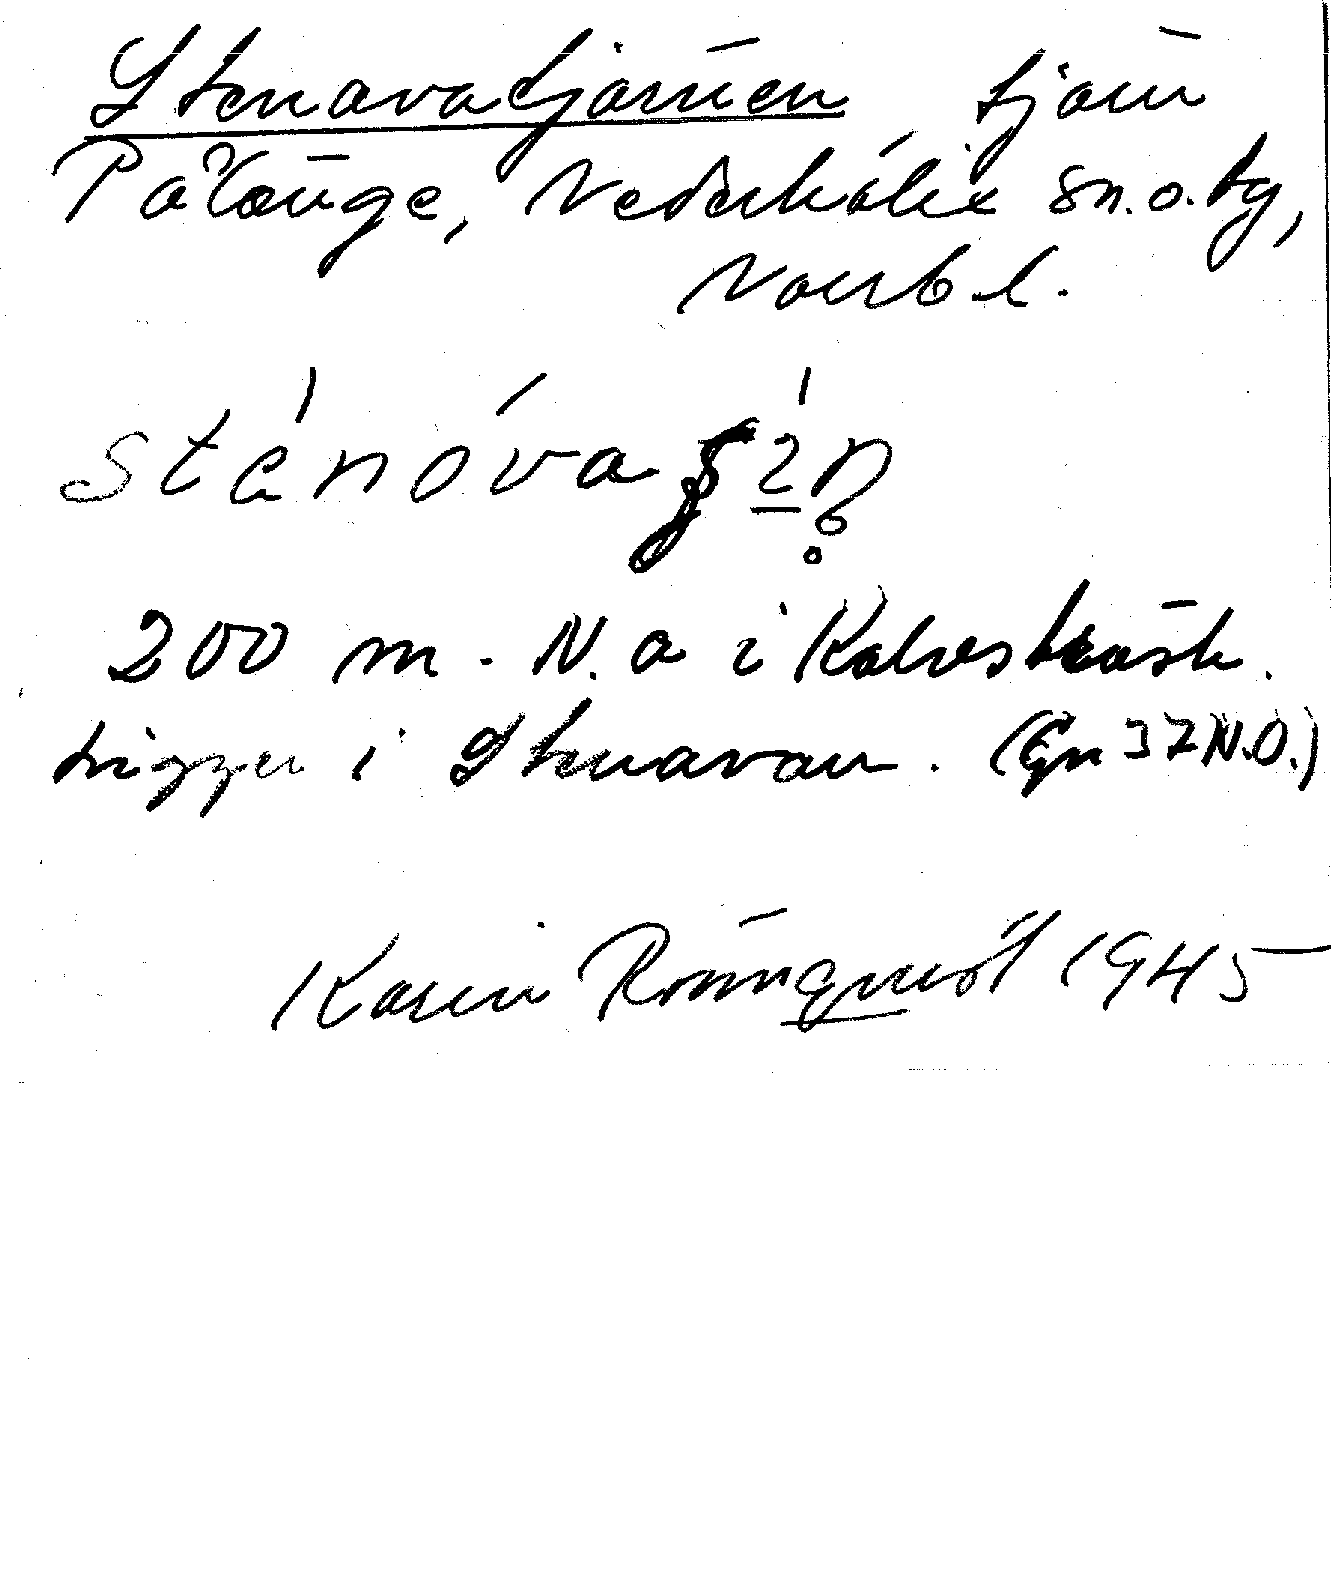 Stenavatjärnen tjärn
Påläng̈e, Nederkalix sn. o. tg,
Norrb. l.
200 m. N. o i Kalvsträsk.
Ligger i Stenavan. (Gn 37 N.O.)
Karin Rönnqvist 1945